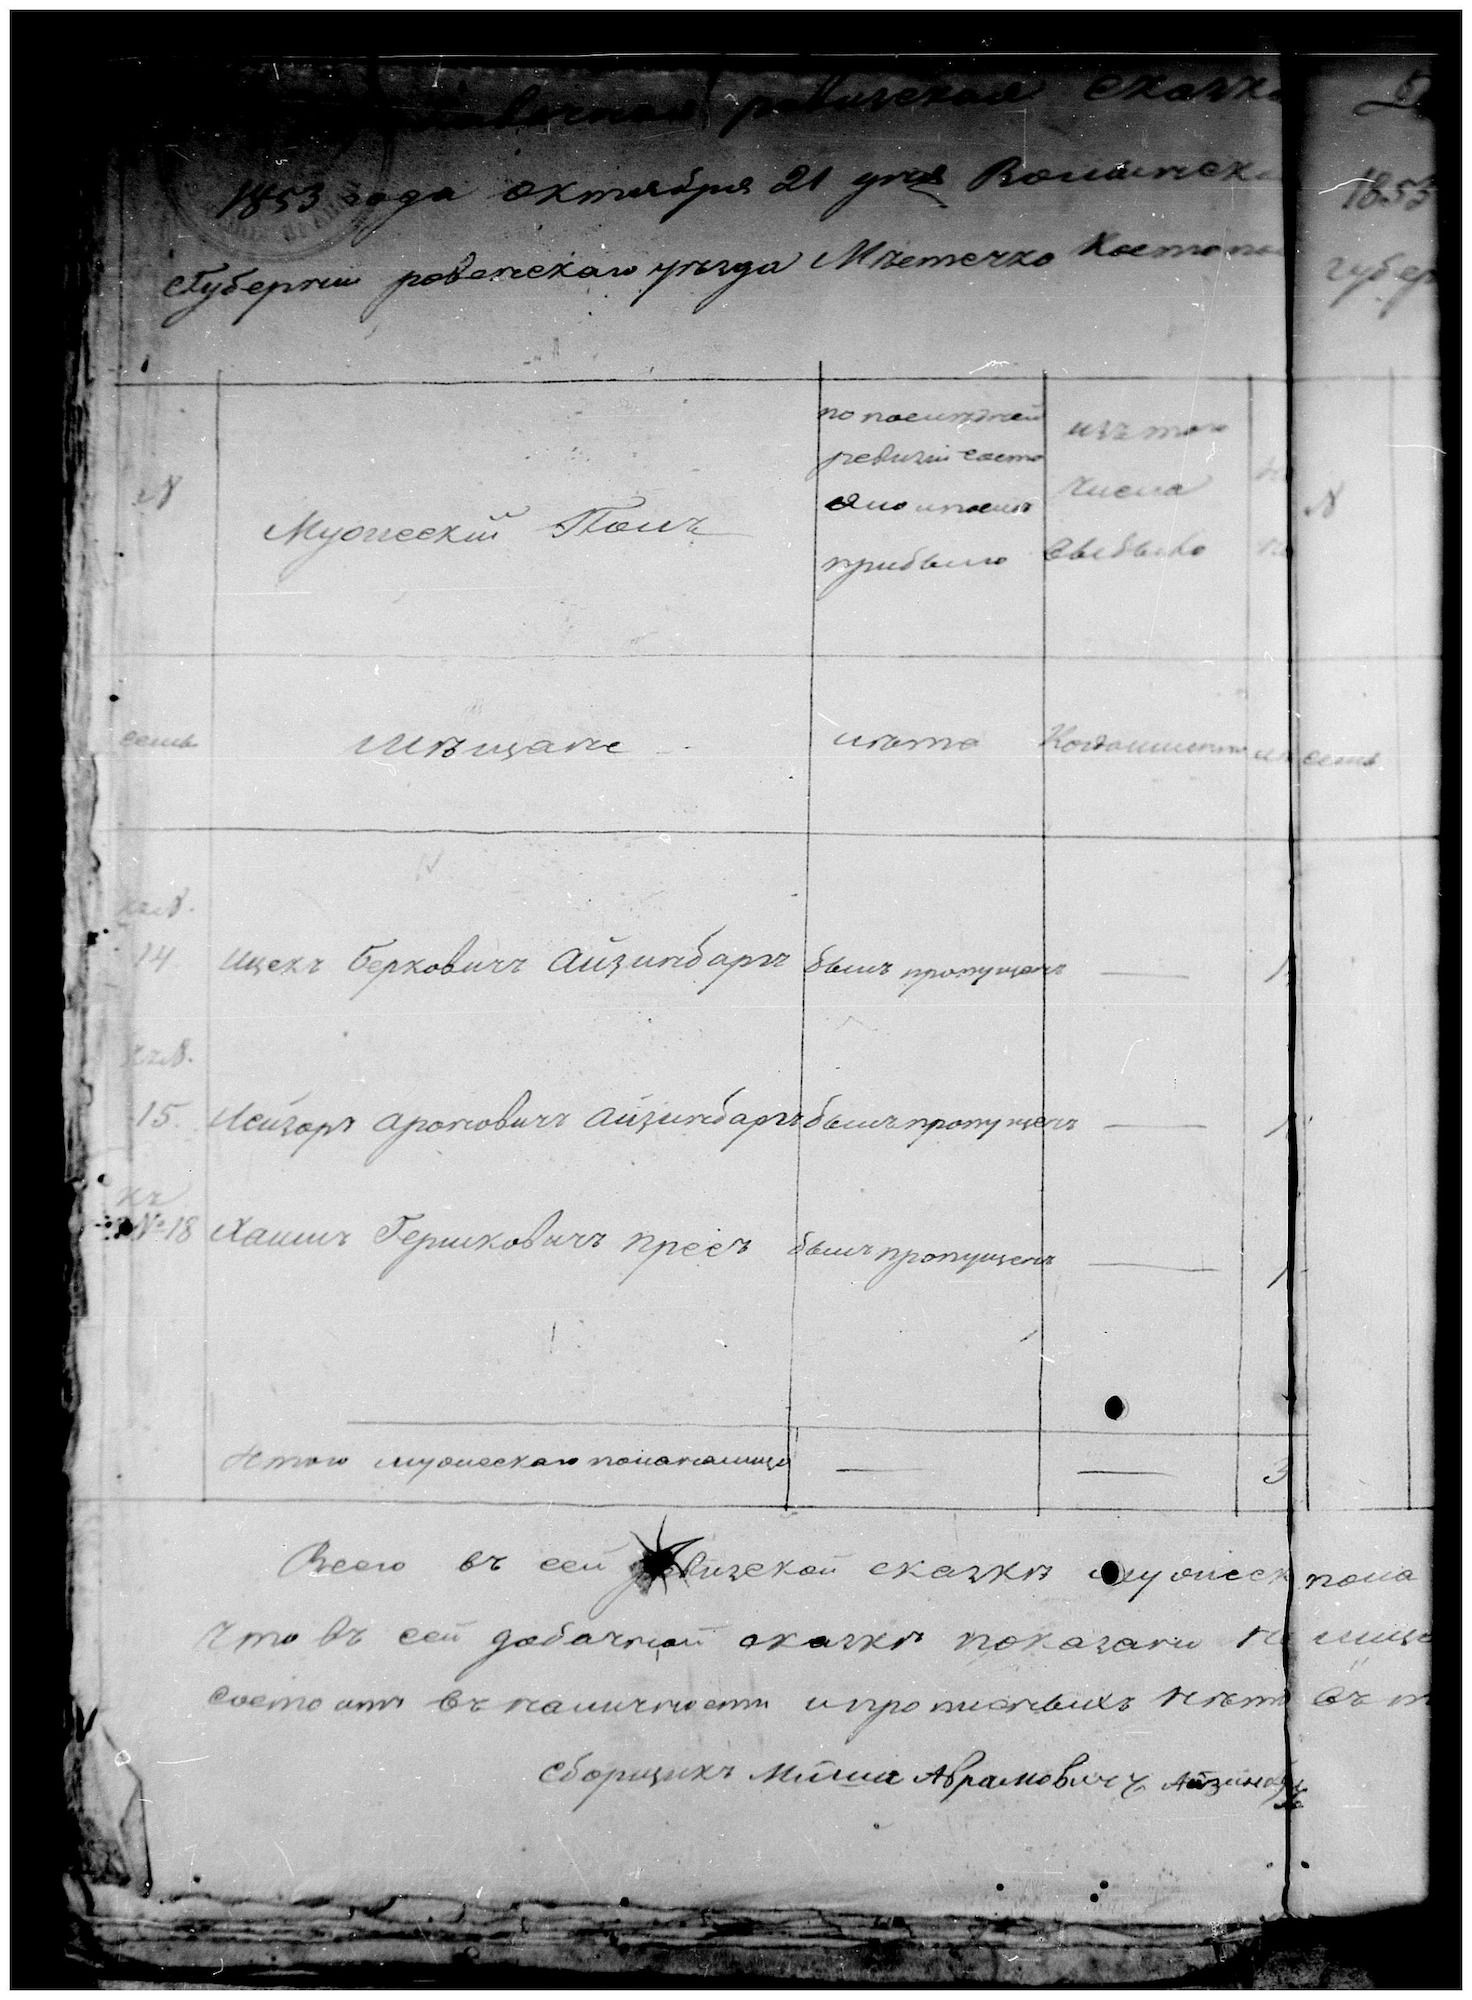 ревизская сказка
1853 года октября 21 дня Волынско
Губернии ровенскаго уезда Мѣстечко Костопо
1853
губер
N
Мужескій Полъ
по послѣдней
ревизіи состо
яло и послѣ
прибыло
изъ того
числа
выбыло
N
семь
Мѣщане
лѣта
Когда именно
семь
къ N.
14 Ицекъ Берковичъ Айзинбаргъ былъ пропущенъ — 1
къ N.
15. Лейзоръ Ароновичъ Айзинбаргъ былъ пропущенъ — 1
къ
№ 18 Хаимъ Гершковичъ Пресъ былъ пропущенъ — 1
Итого мужескаго пола налицо — — 3
Всего въ сей ревизской сказкѣ мужеск пола
что въ сей добачной сказкѣ показани
состоятъ въ наличности и прописныхъ нѣтъ въ т
Сборщикъ Авramовичъ Айзинбаргъ